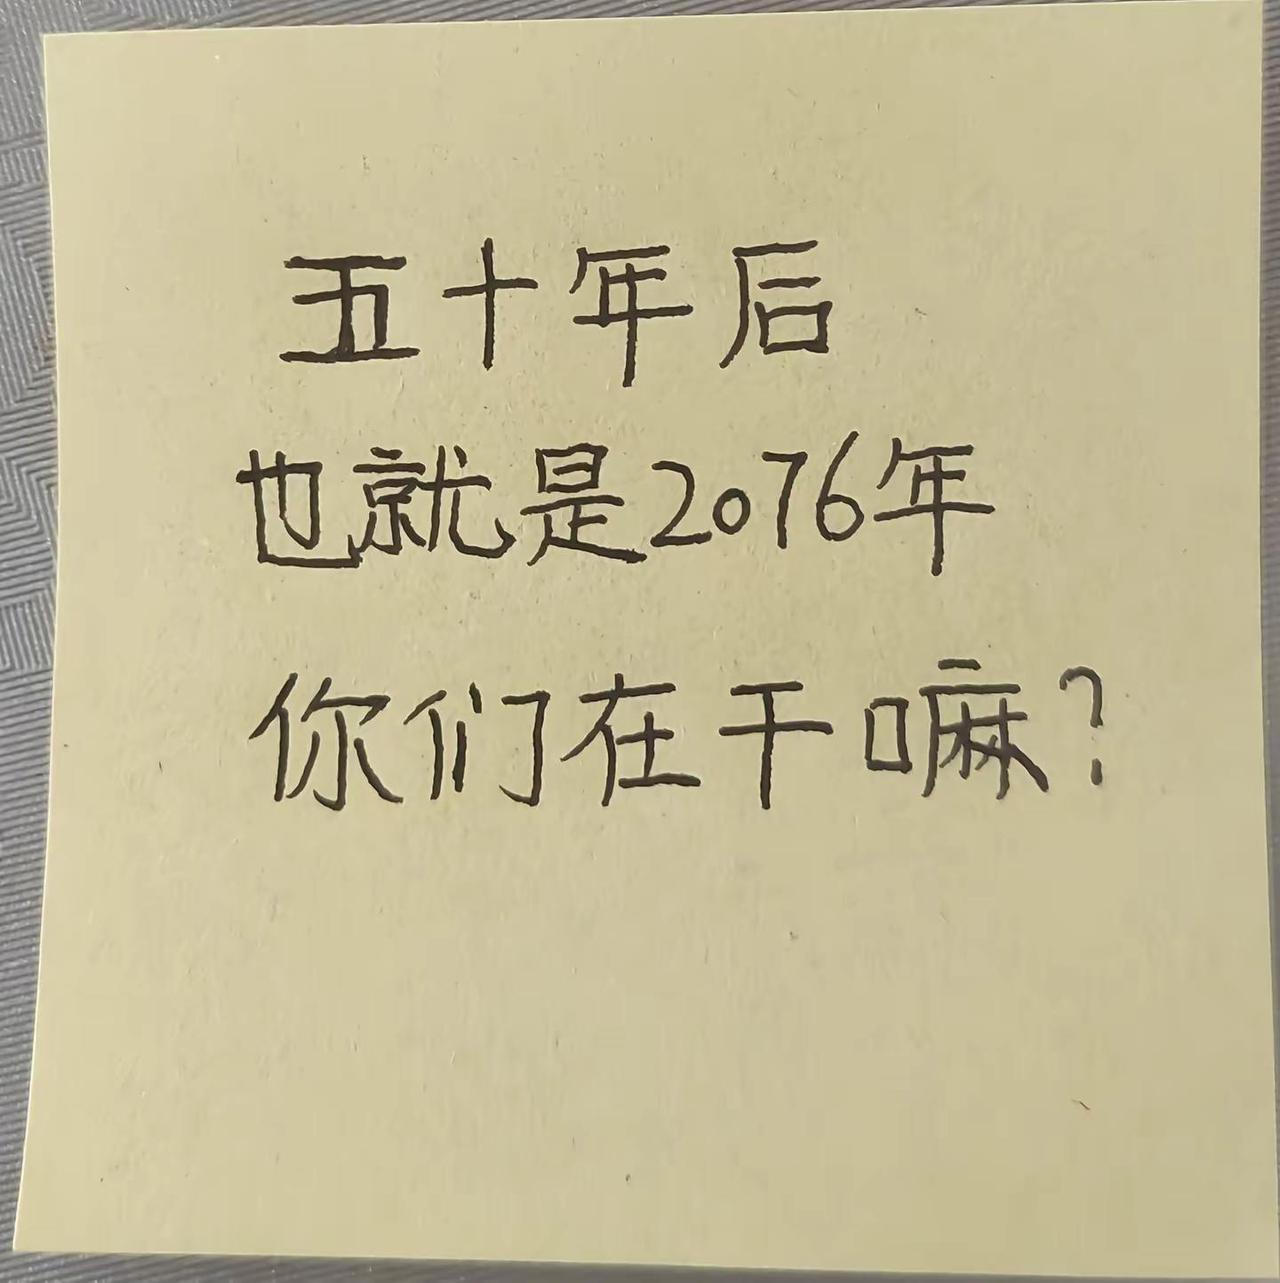 五十年后
也就是2076年
你们在干嘛?